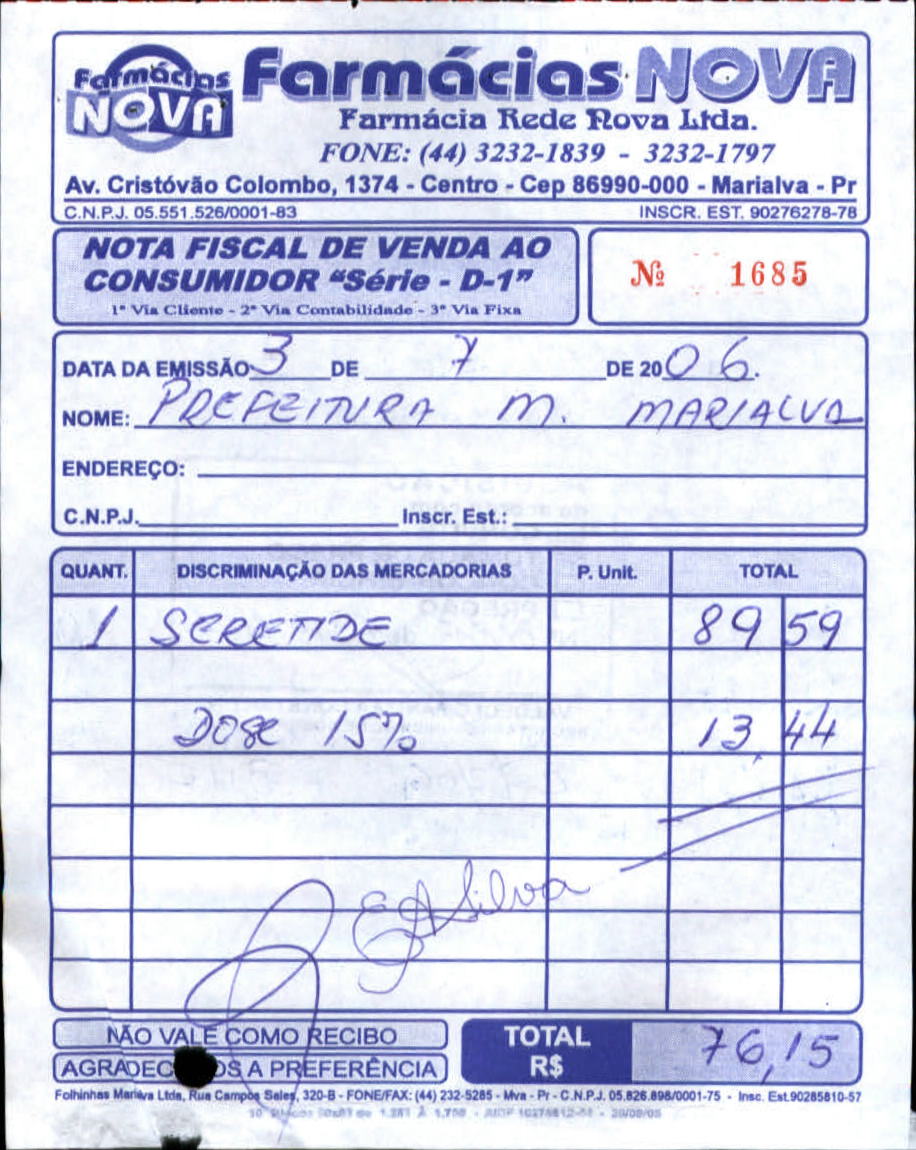 Farmácias NOVA Farmácias NOVA
Farmácia Rede Nova Ltda.
FONE: (44) 3232-1839 - 3232-1797
Av. Cristóvão Colombo, 1374 - Centro - Cep 86990-000 - Marialva - Pr
C.N.P.J. 05.551.526/0001-83 INSCR. EST. 90276278-78
NOTA FISCAL DE VENDA AO
CONSUMIDOR "Série - D-1"
1ª Via Cliente - 2ª Via Contabilidade - 3ª Via Fixa
Nº 1685
DATA DA EMISSÃO 3 DE 7 DE 2006.
NOME: PREFEITURA M. MARIALVA
ENDEREÇO:
C.N.P.J. Inscr. Est.:
QUANT. DISCRIMINAÇÃO DAS MERCADORIAS P. Unit. TOTAL
1 SERETIDE 89 59
15% 13,44
Silva
NÃO VALE COMO RECIBO
AGRADEC OS A PREFERÊNCIA
TOTAL
R$ 76,15
Folhinhas Mariva Ltda, Rua Campos Sales, 320-B - FONE/FAX: (44) 232-5285 - Mva - Pr - C.N.P.J. 05.826.898/0001-75 - Insc. Est.90285810-57